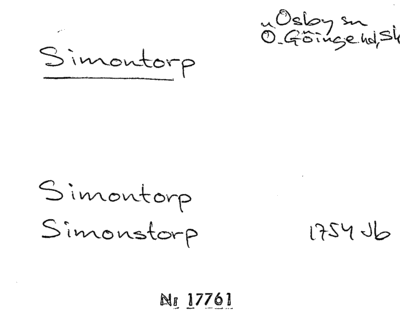 Osby sn
Simontorp
Ö. Göinge hd, Sk
Simontorp
Simonstorp 1754 Jb
Nr 17761